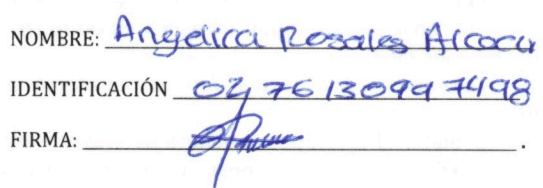 NOMBRE: Angelica Rosales Alcocer
IDENTIFICACIÓN 0276130997498
FIRMA: .